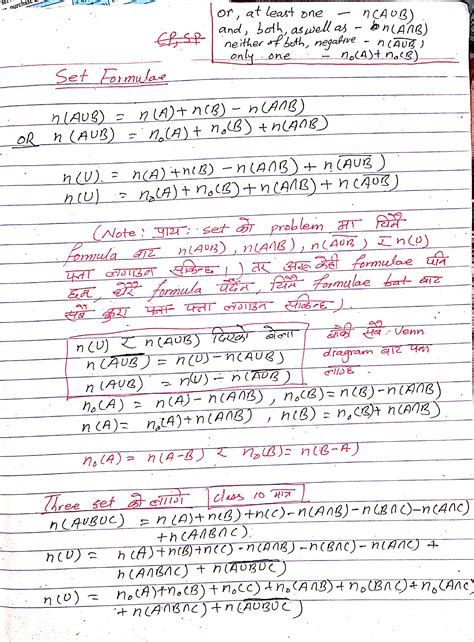 or, at least one — n(A∪B)
and, both, as well as — n(A∩B)
neither of both, negative - n(A̅∪̅B̅)
only one — n₀(A)+n₀(B)
Set Formulae
n(A∪B) = n(A)+n(B) - n(A∩B)
OR n(A∪B) = n₀(A)+ n₀(B) +n(A∩B)
n(U) = n(A)+n(B) - n(A∩B) + n(A̅∪̅B̅)
n(U) = n₀(A)+n₀(B)+n(A∩B)+n(A̅∪̅B̅)
(Note: प्राय: set को problem मा यिनै
formula बाट n(A∪B), n(A∩B), n(A̅∪̅B̅), र n(U)
पत्ता लगाउन सकिन्छ।) तर अरू केही formulae पनि
छन्, धेरै formula पढ्दैन, यिनै formula बाट
सबै कुरा पत्ता लगाउन सकिन्छ)
n(U) र n(A∪B) दिएको बेला
n(A̅∪̅B̅) = n(U) - n(A∪B)
n(A∪B) = n(U) - n(A̅∪̅B̅)
बाँकी सबै Venn
diagram बाट पत्ता
लाग्छ.
n₀(A) = n(A)-n(A∩B), n₀(B)= n(B)-n(A∩B)
n(A)= n₀(A)+n(A∩B), n(B) = n₀(B)+ n(A∩B)
n₀(A) = n(A-B) र n₀(B)= n(B-A)
Three set को लागि class 10 मात्र
n(A∪B∪C) = n(A)+n(B)+n(C)-n(A∩B)-n(B∩C)-n(A∩C)
+n(A∩B∩C)
n(U) = n(A)+n(B)+n(C)-n(A∩B)-n(B∩C)-n(A∩C)+
n(A∩B∩C) + n(A̅∪̅B̅∪̅C̅)
n(U) = n₀(A)+n₀(B)+n₀(C)+n₀(A∩B)+n₀(B∩C)+n₀(A∩C)
+n(A∩B∩C)+n(A̅∪̅B̅∪̅C̅)